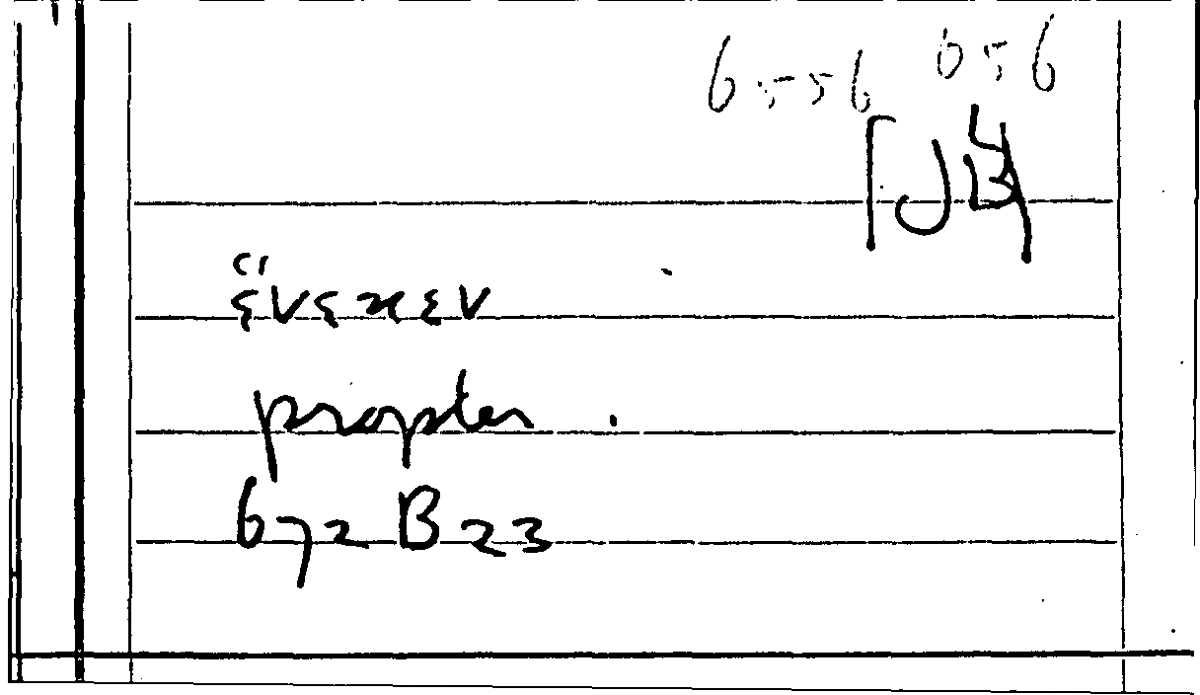 6556 656
ἕνεκεν
propter.
672 B 23